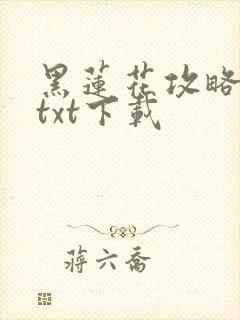 黑蓮花攻略
txt下載
蔣六喬